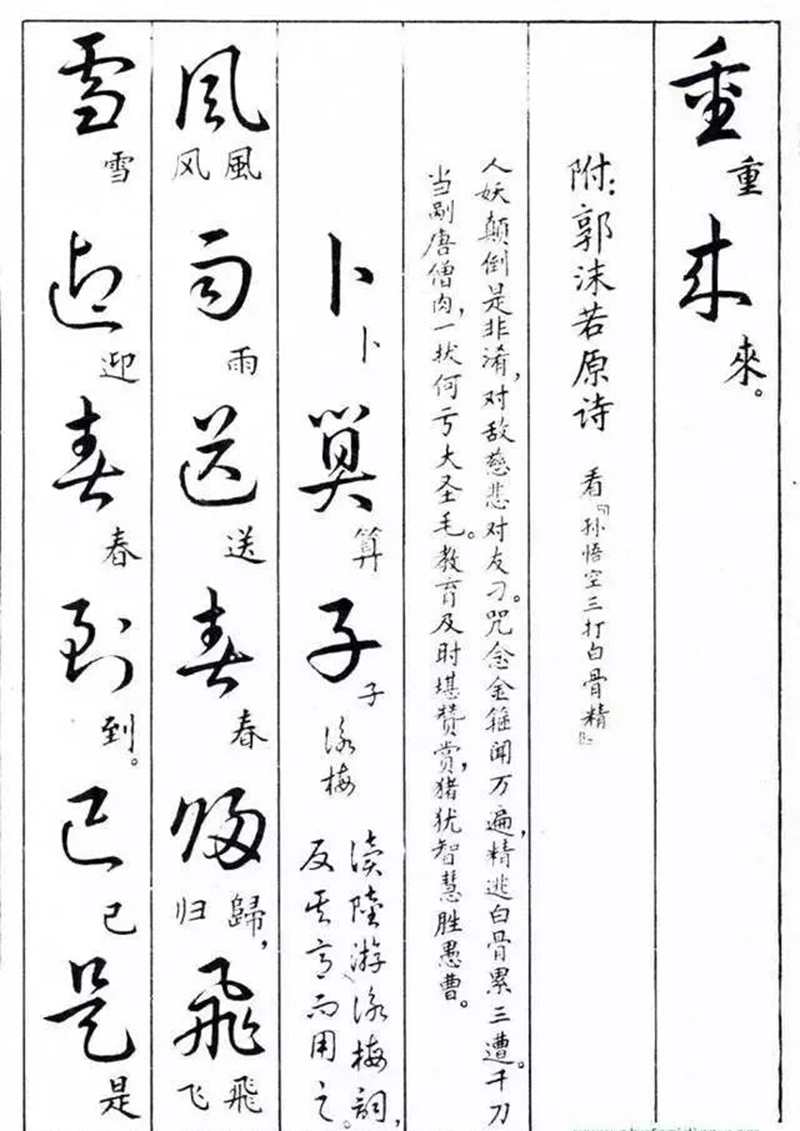 重重来來。
附：郭沫若原诗 看『孙悟空三打白骨精』
人妖颠倒是非淆，对敌慈悲对友刁。咒念金箍闻万遍，精逃白骨累三遭。千刀
当剐唐僧肉，一拔何亏大圣毛。教育及时堪赞赏，猪犹智慧胜愚曹。
卜卜算算子子 咏梅
读陸游咏梅詞，
反其意而用之。
风風风雨雨送送春春归歸归，飛飛飞
雪雪迎迎春春到到。已已是是